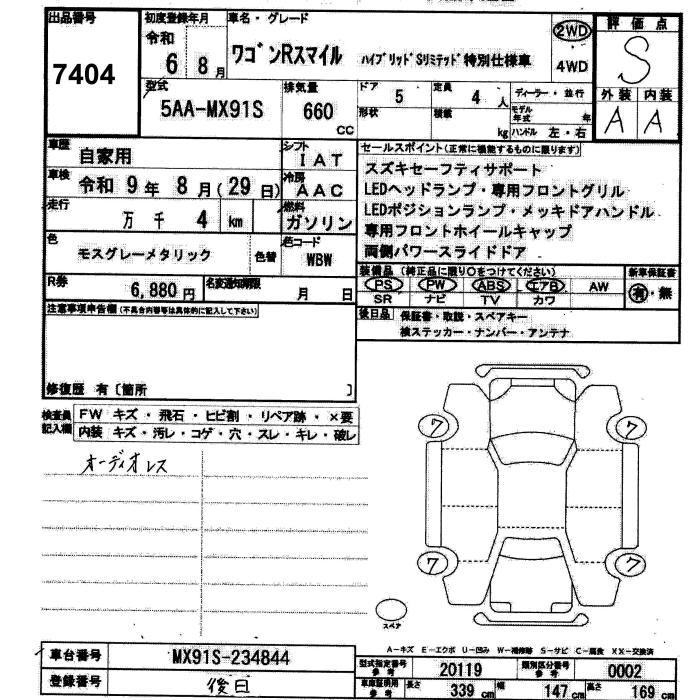 出品番号 初度登録年月 車名・グレード 評価点
7404 令和 6 8月 ワゴンRスマイル ハイブリッドSリミテッド特別仕様車 2WD 4WD S
型式 排気量 ドア 定員 ディーラー・並行 外装 内装
5AA-MX91S 660 CC 5 4 人 A A
形状 積載 kg モデル年式 年
ハンドル 左・右
車歴 自家用 シフト IAT
車検 令和 9 年 8 月(29 日) 冷房 AAC
走行 万 千 4 km 燃料 ガソリン
色 モスグレーメタリック 色替 色コード WBW
R券 6,880 円 名変通知期限 月 日
セールスポイント(正常に機能するものに限ります)
スズキセーフティサポート
LEDヘッドランプ・専用フロントグリル
LEDポジションランプ・メッキドアハンドル
専用フロントホイールキャップ
両側パワースライドドア
装備品(純正品に限り○をつけてください) 新車保証書
PS PW ABS エアB AW 有・無
SR ナビ TV カワ
後日品 保証書・取説・スペアキー
検ステッカー・ナンバー・アンテナ
注意事項申告欄(不具合内容等は具体的に記入して下さい)
修復歴 有〔箇所 〕
検査員記入欄 FW キズ・飛石・ヒビ割・リペア跡・×要
内装 キズ・汚レ・コゲ・穴・スレ・キレ・破レ
オーディオレス
7 7
7 7
スペア
A-キズ E-エクボ U-凹み W-補修跡 S-サビ C-腐食 XX-交換済
車台番号 MX91S-234844
登録番号 後日
型式指定番号 参考 20119 類別区分番号 参考 0002
車庫証明用 参考 長さ 339 cm 幅 147 cm 高さ 169 cm